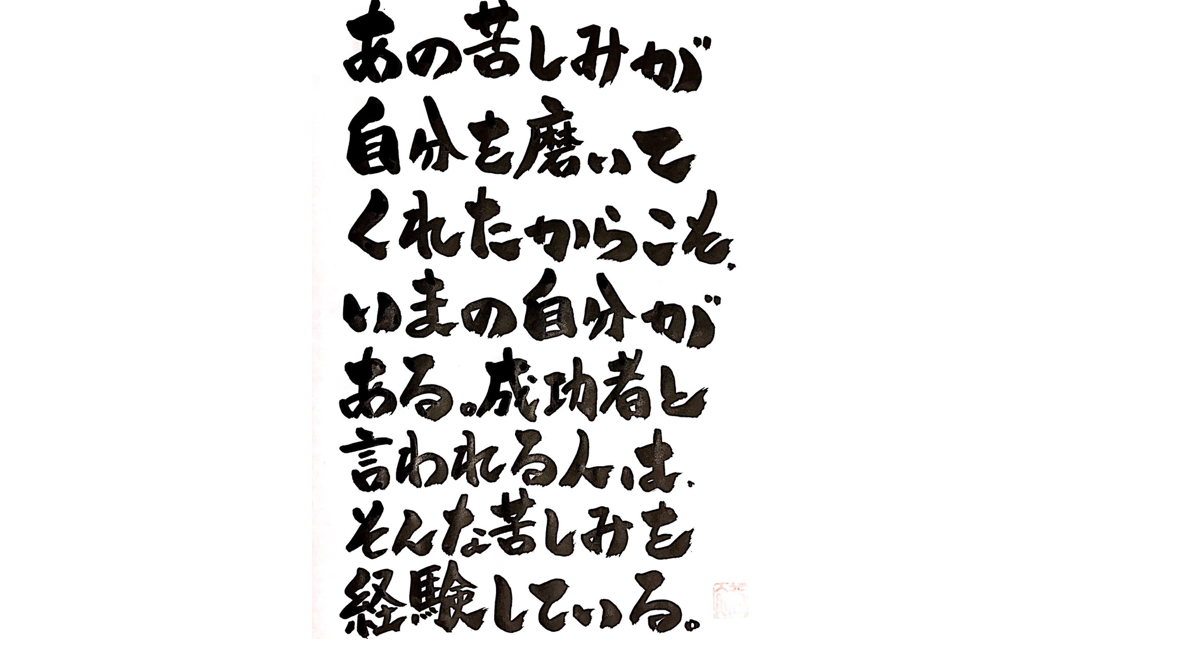 あの苦しみが
自分を磨いて
くれたからこそ、
いまの自分が
ある。成功者と
言われる人は、
そんな苦しみを
経験している。